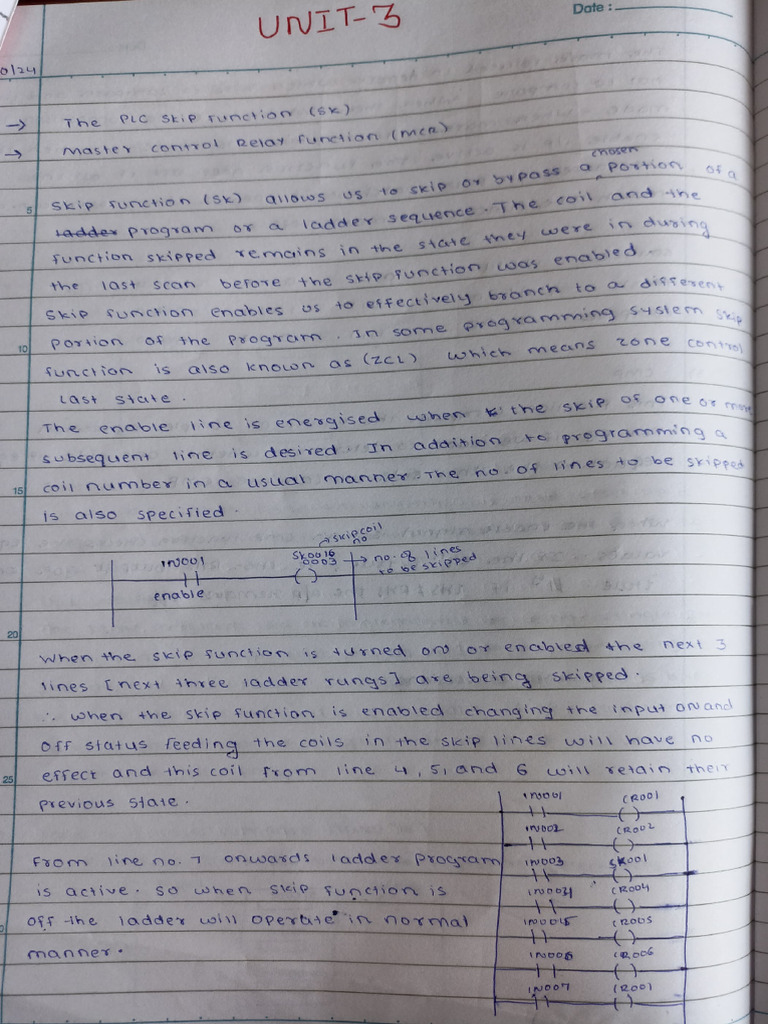 UNIT-3
Date :
0/24
→ The PLC skip function (SK)
→ Master control Relay function (MCR)
chosen
Skip function (SK) allows us to skip or bypass a portion of a
5
ladder program or a ladder sequence. The coil and the
function skipped remains in the state they were in during
the last scan before the skip function was enabled.
Skip function enables us to effectively branch to a different
portion of the program. In some programming system skip
10
function is also known as (ZCL) which means zone control
last state.
The enable line is energised when the skip of one or more
subsequent line is desired. In addition to programming a
coil number in a usual manner. The no. of lines to be skipped
15
is also specified.
→ skip coil
no
IN001 SK0016
0003 → no. of lines
to be skipped
enable
20
When the skip function is turned on or enabled the next 3
lines [next three ladder rungs] are being skipped.
∴ when the skip function is enabled changing the input on and
off status feeding the coils in the skip lines will have no
25
effect and this coil from line 4, 5, and 6 will retain their
previous state.
IN001 CR001
IN002 CR002
From line no. 7 onwards ladder program
IN003 SK001
is active. So when skip function is
CR004
off the ladder will operate in normal
CR005
manner.
IN006 CR006
IN007 CR001